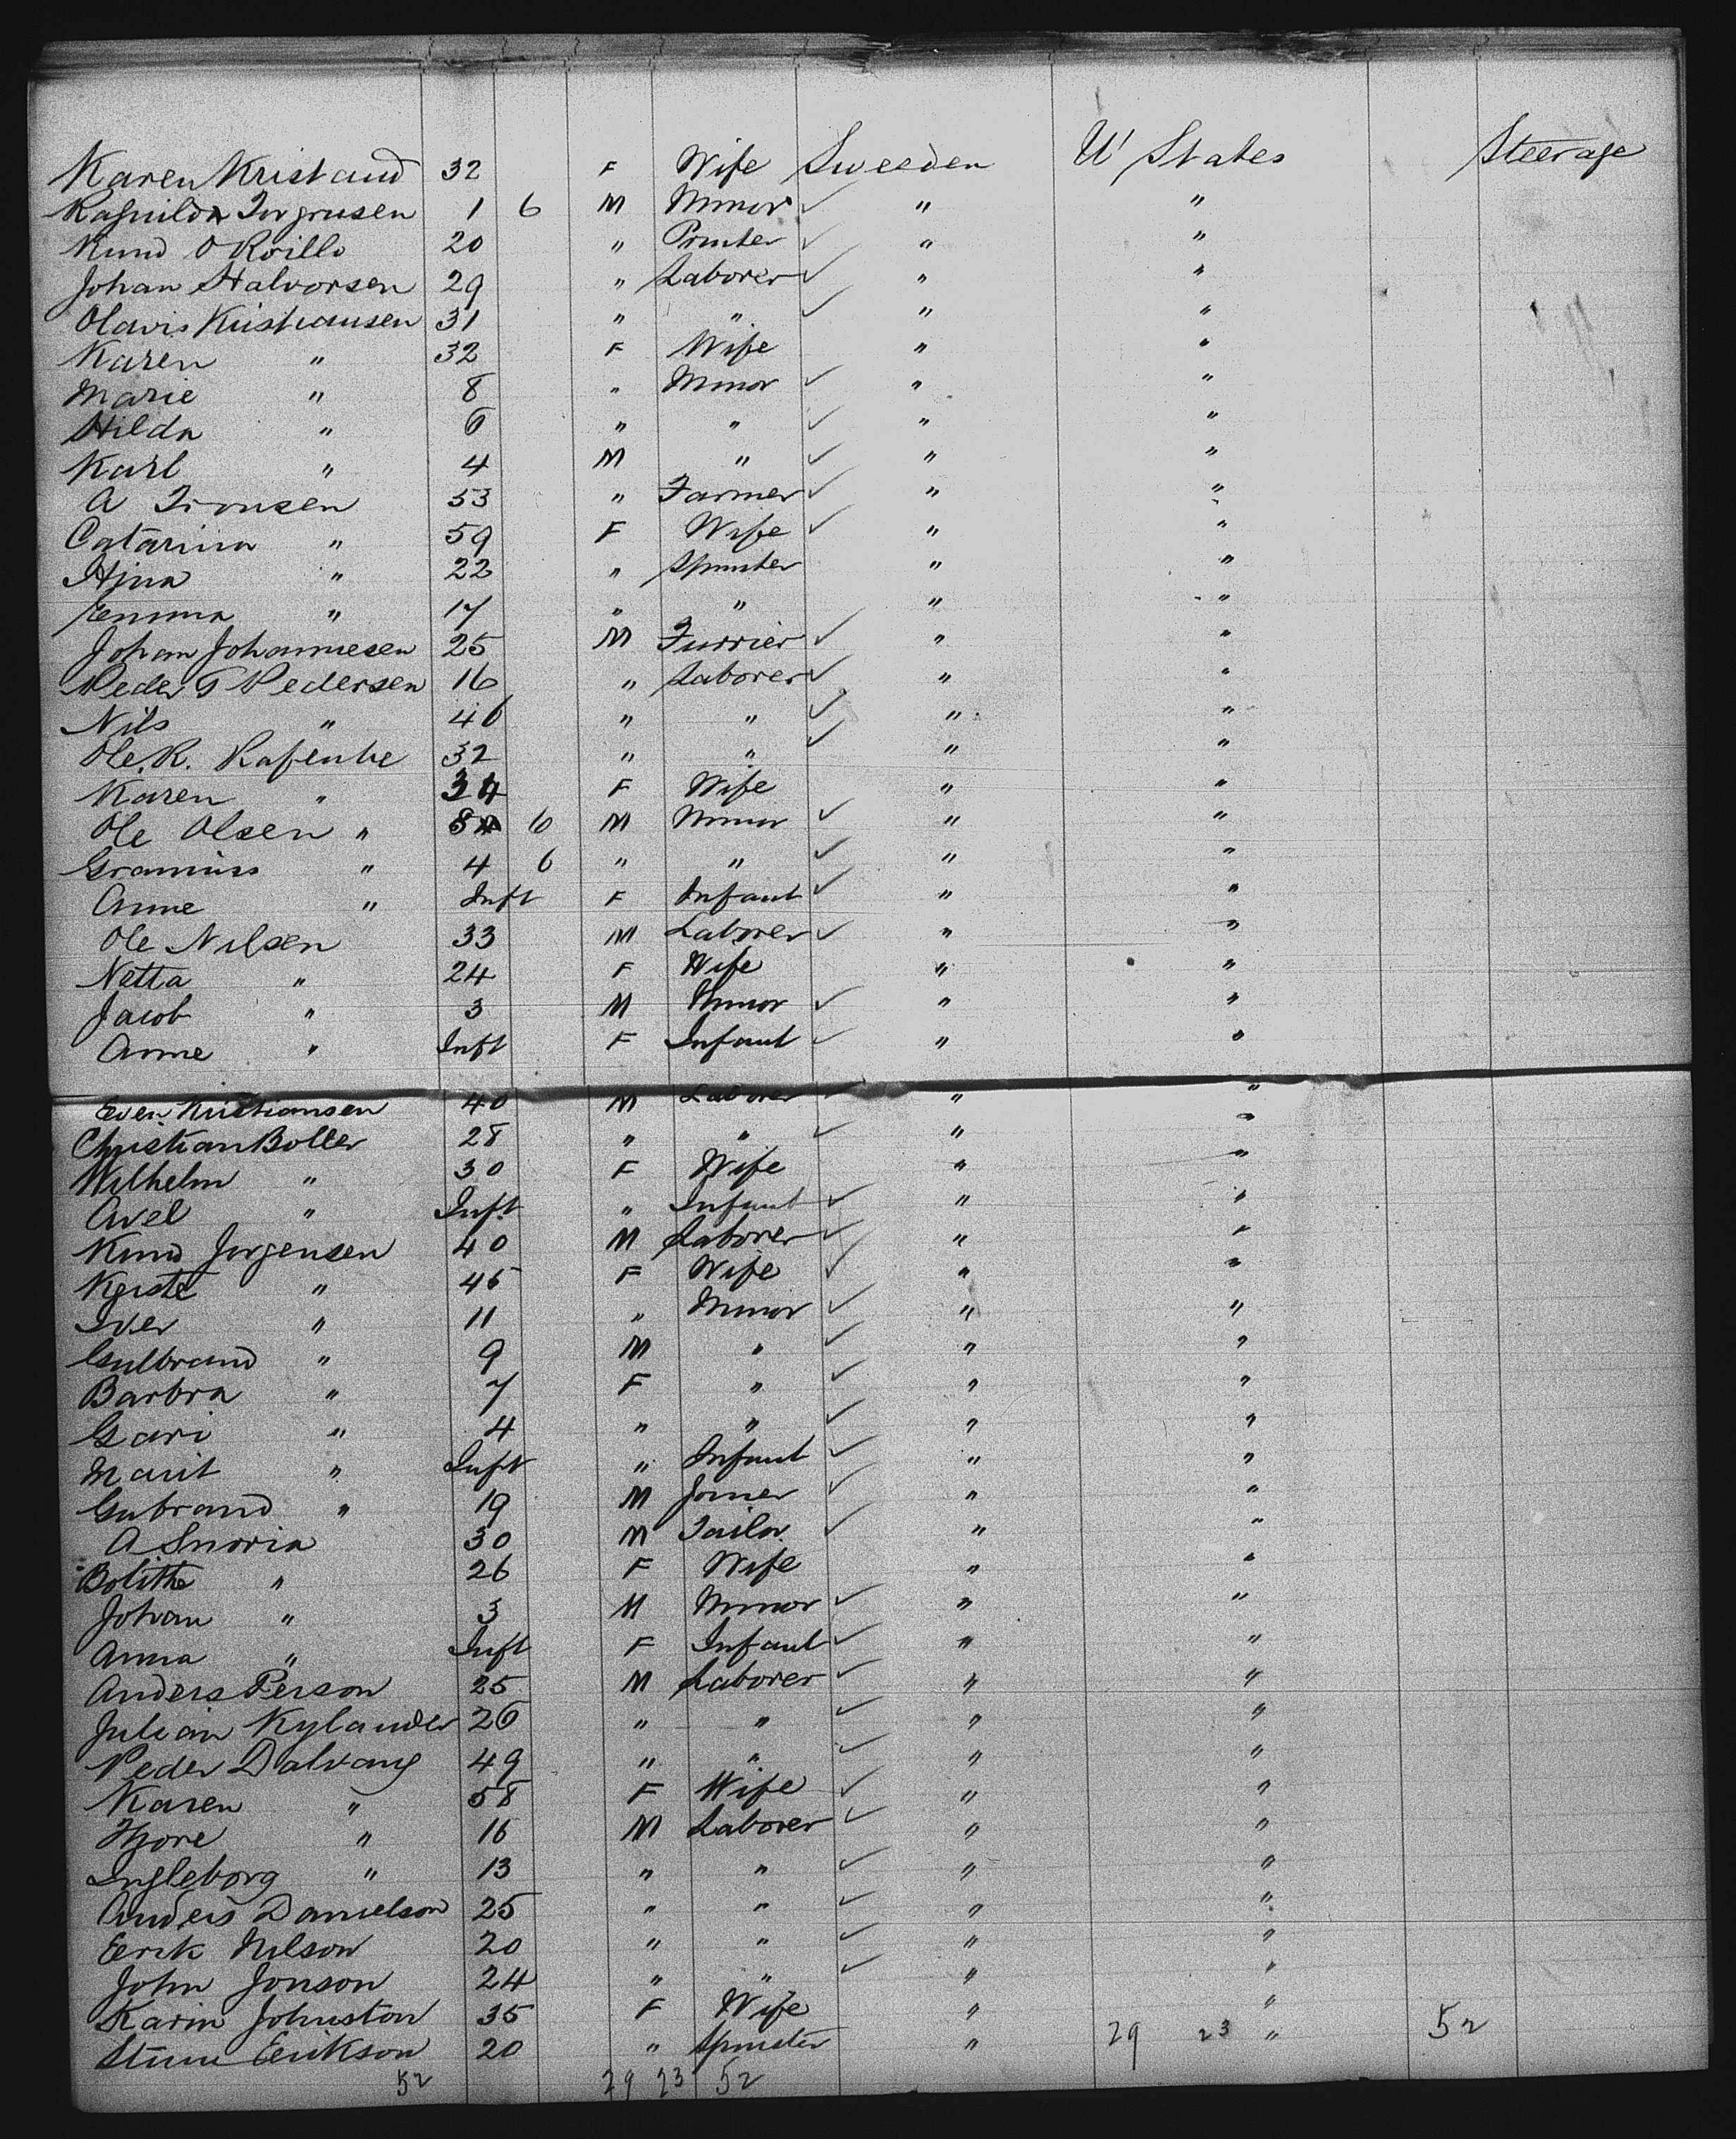 Karen Kristand 32 F Wife Sweeden U States Steerage
Ragnilda Jorgnsen 1 6 M Minor ✓ " "
Knud O Roillo 20 " Printer ✓ " "
Johan Halvorsen 29 " Laborer ✓ " "
Olavis Kristiansen 31 " " ✓ " "
Karen " 32 F Wife " "
Marie " 8 " Minor ✓ " "
Hilda " 6 " " ✓ " "
Karl " 4 M " ✓ " "
A Tronsen 53 " Farmer ✓ " "
Catarina " 59 F Wife ✓ " "
Hina " 22 " Spinster " "
Emma " 17 " " " "
Johan Johannesen 25 M Furrier ✓ " "
Peder T Pedersen 16 " Laborer ✓ " "
Nils " 46 " " ✓ " "
Ole. R. 32 " " ✓ " "
Karen " 34 F Wife " "
Ole Olsen " 8 6 M Minor ✓ " "
" 4 6 " " ✓ " "
Anne " Inft F Infant ✓ " "
Ole Nilsen 33 M Laborer ✓ " "
Netta " 24 F Wife " "
Jacob " 3 M Minor ✓ " "
Anne " Inft F Infant ✓ " "
Even Kristiansen 40 M Laborer ✓ " "
Christian Boller 28 " " ✓ " "
Wilhelm " 30 F Wife " "
Avel " Inft " Infant ✓ " "
Knud Jorgensen 40 M Laborer ✓ " "
Kerste " 45 F Wife ✓ " "
Iver " 11 " Minor ✓ " "
Gulbrand " 9 M " ✓ " "
Barbra " 7 F " ✓ " "
Gari " 4 " " ✓ " "
Marit " Inft " Infant ✓ " "
Gubrand " 19 M Joiner ✓ " "
A Snoria 30 M Tailor ✓ " "
Bolithe " 26 F Wife " "
Johan " 3 M Minor ✓ " "
Anna " Inft F Infant ✓ " "
Anders Person 25 M Laborer ✓ " "
Julian Kylander 26 " " ✓ " "
Peder Dalvang 49 " " ✓ " "
Karen " 58 F Wife ✓ " "
Thore " 16 M Laborer ✓ " "
Ingleborg " 13 " " ✓ " "
Anders Danielson 25 " " ✓ " "
Eerik Nilson 20 " " ✓ " "
John Jonson 24 " " ✓ " "
Karin Johnston 35 F Wife " "
Stine Eerikson 20 " Spinster " 29 23 " 52
52 29 23 52